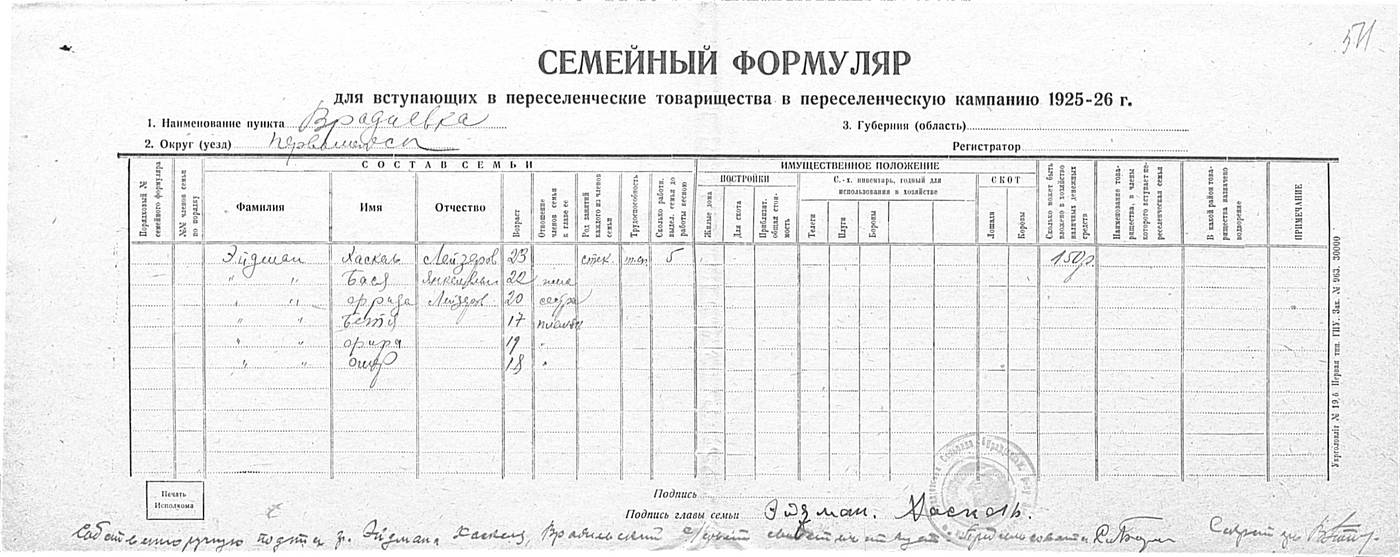 511
СЕМЕЙНЫЙ ФОРМУЛЯР
для вступающих в переселенческие товарищества в переселенческую кампанию 1925-26 г.
1. Наименование пункта Врадиевка
3. Губерния (область)
2. Округ (уезд)
Регистратор
СОСТАВ СЕМЬИ
ИМУЩЕСТВЕННОЕ ПОЛОЖЕНИЕ
ПОСТРОЙКИ
С.-х. инвентарь, годный для использования в хозяйстве
СКОТ
Порядковый № семейного формуляра
№№ членов семьи по порядку
Фамилия
Имя
Отчество
Возраст
Отношение членов семьи к главе ее
Род занятий каждого из членов семьи
Трудоспособность
Сколько работн. выдел. семья до работы весною
Жилые дома
Для скота
Приблизит. общая стоимость
Телеги
Плуги
Бороны
Лошади
Коровы
Сколько может быть вложено в хозяйство наличных денежных средств
Наименование товарищества, в члены которого вступает переселенческая семья
В какой район товарищества назначено водворение
ПРИМЕЧАНИЕ
Эйдман Хаскель Лейзеров 23 5 150 р.
" " Бася 22 жена
" " Фрида 20 сестра
" " 17
" " 19 "
" " 18 "
Укрголовліт № 19.6 Первая тип. ГПУ. Зак. № 963. 30000
Печать Исполкома
Подпись
Подпись главы семьи Эйдман. Хаскель.
Собственноручную подпись гр. Эйдмана Хаскеля, Врадиевский